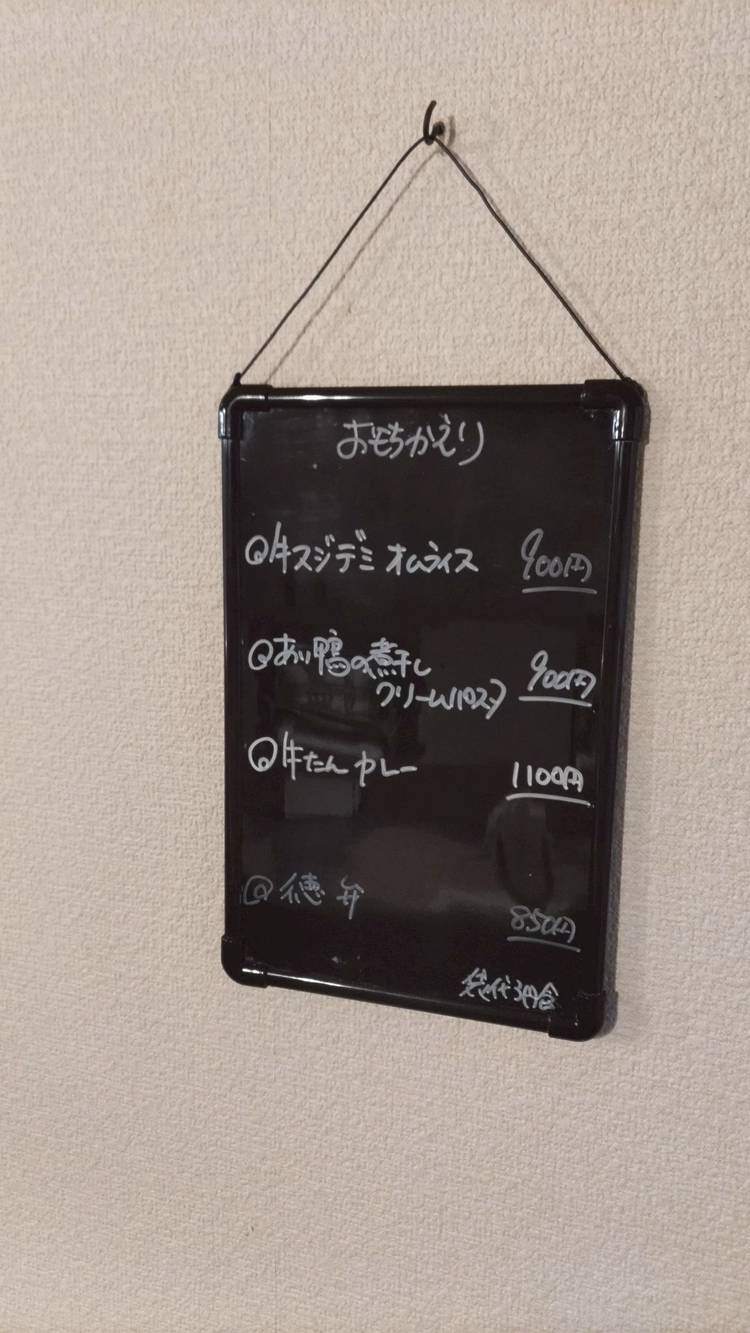 おもちかえり
牛スジデミ オムライス 900円
あい鴨の煮干し
クリームパスタ 900円
牛たん カレー 1100円
徳弁 850円
袋代3円含